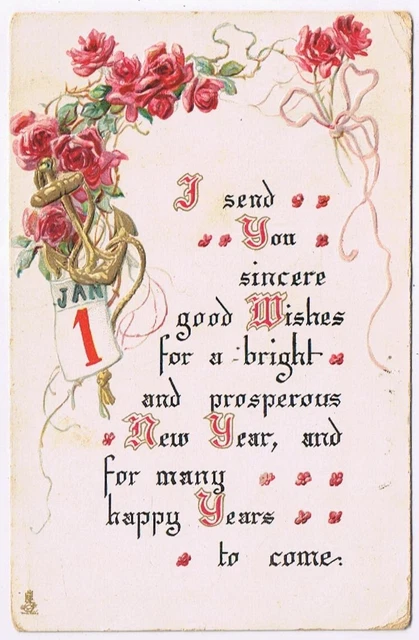 JAN
1
I send
You
sincere
good Wishes
for a bright
and prosperous
New Year, and
for many
happy Years
to come.